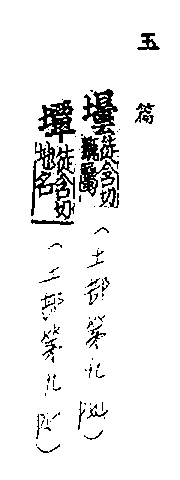 玉篇
壜徒含切甒屬
(土部第九)
墰徒含切地名
(土部第九)